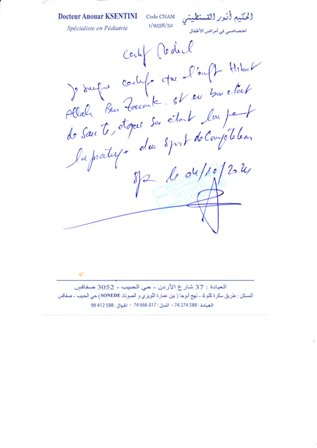 Docteur Anouar KSENTINI
Spécialiste en Pédiatrie
Code CNAM
1/9558/52
الحكيم أنور القسنطيني
اختصاصي في أمراض الأطفال
Je soussigné certifie que l'enft Hibat
Allah Ben est en bon état
de santé, et que son état lui permet
la pratique du sport de compétition
Sfax le 04/10/2024
العيادة : 37 شارع الأردن - حي الحبيب - 3052 صفاقس
المسكن : طريق سكرة كلم 5 - نهج أبوجا ( بين عمارة اللويزي و الصوناد SONEDE) حي الحبيب - صفاقس
العيادة : 588 274 74 - المنزل : 817 666 74 - الجوال : 588 412 98